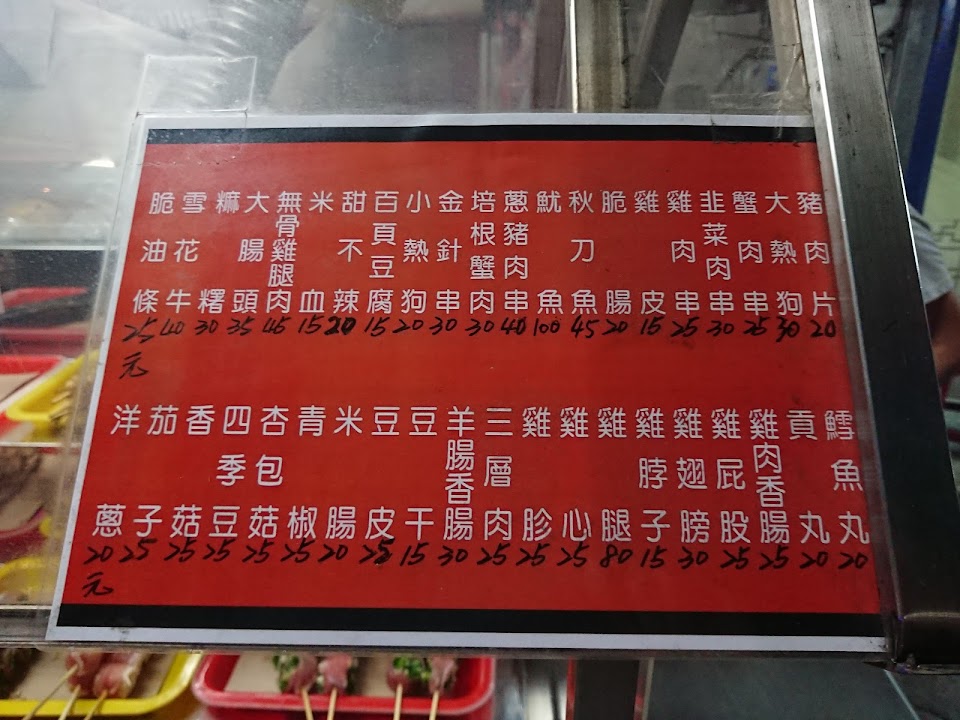 脆油條25元
雪花牛40
𥻵糬30
大腸頭35
無骨雞腿肉45
米血15
甜不辣20
百頁豆腐15
小熱狗20
金針串30
培根蟹肉30
蔥豬肉串40
魷魚100
秋刀魚45
脆腸20
雞皮15
雞肉串25
韭菜肉串30
蟹肉串25
大熱狗30
豬肉片20
洋蔥20元
茄子25
香菇25
四季豆25
杏包菇25
青椒25
米腸20
豆皮25
豆干15
羊腸香腸30
三層肉25
雞胗25
雞心25
雞腿80
雞脖子15
雞翅膀30
雞屁股25
雞肉香腸25
貢丸20
鱈魚丸20